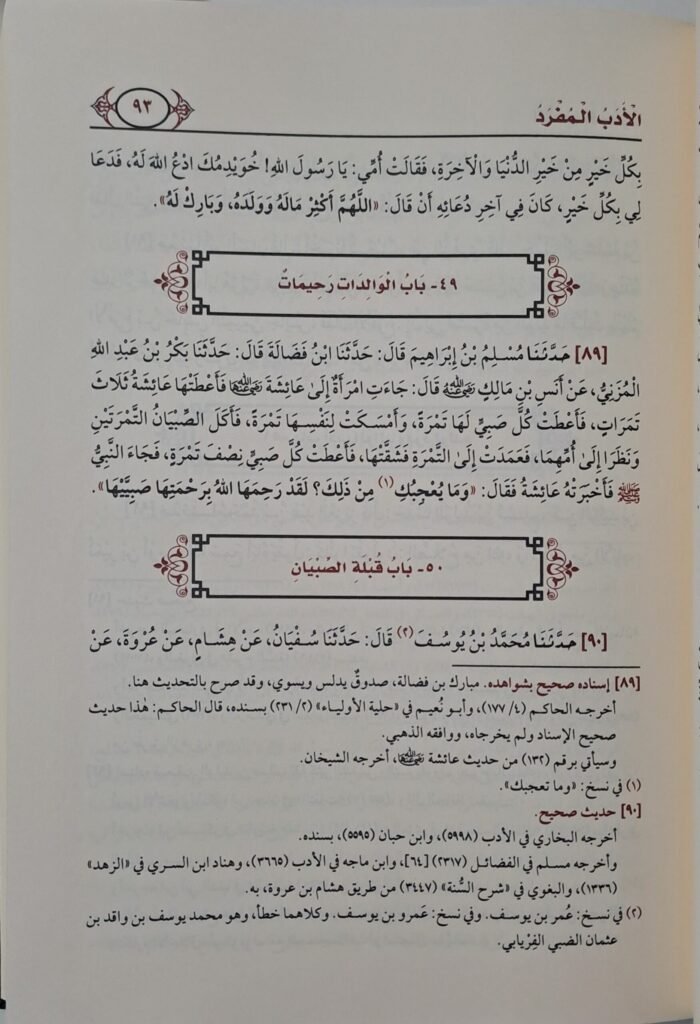 الْأَدَبُ الْمُفْرَدُ
٩٣
بِكُلِّ خَيْرٍ مِنْ خَيْرِ الدُّنْيَا وَالْآخِرَةِ، فَقَالَتْ أُمِّي: يَا رَسُولَ اللهِ! خُوَيْدِمُكَ ادْعُ اللهَ لَهُ، فَدَعَا
لِي بِكُلِّ خَيْرٍ، كَانَ فِي آخِرِ دُعَائِهِ أَنْ قَالَ: «اللَّهُمَّ أَكْثِرْ مَالَهُ وَوَلَدَهُ، وَبَارِكْ لَهُ».
٤٩- بَابُ الْوَالِدَاتِ رَحِيمَاتٌ
[٨٩] حَدَّثَنَا مُسْلِمُ بْنُ إِبْرَاهِيمَ قَالَ: حَدَّثَنَا ابْنُ فَضَالَةَ قَالَ: حَدَّثَنَا بَكْرُ بْنُ عَبْدِ اللهِ
الْمُزَنِيُّ، عَنْ أَنَسِ بْنِ مَالِكٍ ﵁ قَالَ: جَاءَتِ امْرَأَةٌ إِلَى عَائِشَةَ ﵂ فَأَعْطَتْهَا عَائِشَةُ ثَلَاثَ
تَمَرَاتٍ، فَأَعْطَتْ كُلَّ صَبِيٍّ لَهَا تَمْرَةً، وَأَمْسَكَتْ لِنَفْسِهَا تَمْرَةً، فَأَكَلَ الصِّبْيَانُ التَّمْرَتَيْنِ
وَنَظَرَا إِلَى أُمِّهِمَا، فَعَمَدَتْ إِلَى التَّمْرَةِ فَشَقَّتْهَا، فَأَعْطَتْ كُلَّ صَبِيٍّ نِصْفَ تَمْرَةٍ، فَجَاءَ النَّبِيُّ
ﷺ فَأَخْبَرَتْهُ عَائِشَةُ فَقَالَ: «وَمَا يُعْجِبُكِ(١) مِنْ ذَلِكَ؟ لَقَدْ رَحِمَهَا اللهُ بِرَحْمَتِهَا صَبِيَّيْهَا».
٥٠- بَابُ قُبْلَةِ الصِّبْيَانِ
[٩٠] حَدَّثَنَا مُحَمَّدُ بْنُ يُوسُفَ(٢) قَالَ: حَدَّثَنَا سُفْيَانُ، عَنْ هِشَامٍ، عَنْ عُرْوَةَ، عَنْ
[٨٩] إسناده صحيح بشواهده. مبارك بن فضالة، صدوقٌ يدلس ويسوي، وقد صرح بالتحديث هنا.
أخرجه الحاكم (٤/ ١٧٧)، وأبو نُعيم في «حلية الأولياء» (٢/ ٢٣١) بسنده، قال الحاكم: هٰذا حديث
صحيح الإسناد ولم يخرجاه، ووافقه الذهبي.
وسيأتي برقم (١٣٢) من حديث عائشة ﵂، أخرجه الشيخان.
(١) في نسخ: «وما تعجبك».
[٩٠] حديث صحيح.
أخرجه البخاري في الأدب (٥٩٩٨)، وابن حبان (٥٥٩٥)، بسنده.
وأخرجه مسلم في الفضائل (٢٣١٧) [٦٤]، وابن ماجه في الأدب (٣٦٦٥)، وهناد ابن السري في «الزهد»
(١٣٣٦)، والبغوي في «شرح السُّنة» (٣٤٤٧) من طريق هشام بن عروة، به.
(٢) في نسخ: عُمر بن يوسف. وفي نسخ: عَمرو بن يوسف. وكلاهما خطأ، وهو محمد يوسف بن واقد بن
عثمان الضبي الفِرْيابي.